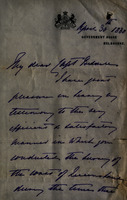 April 30 1880
GOVERNMENT HOUSE
MELBOURNE
My dear Capt
I have great
pleasure in bearing my
testimony to the very
efficient & satisfactory
manner in which you
conducted the
of the
during the time that